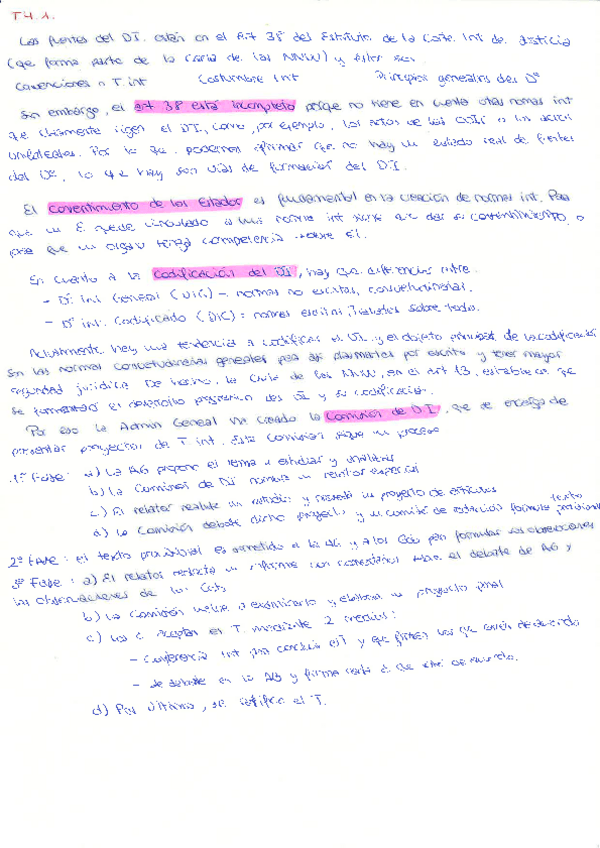 T4.1.
Las fuentes del D.I. están en el Art 38 del Estatuto de la Corte Int de Justicia
(que forma parte de la Carta de las NNUU) y estas son:
Convenciones o T. int Costumbre Int Principios generales del Dº
Sin embargo, el art 38 está incompleto porque no tiene en cuenta otras normas int
que claramente rigen el DI, como, por ejemplo, los actos de las OOII o los actos
unilaterales. Por lo que podemos afirmar que no hay un listado real de fuentes
del Dº, lo que hay son vías de formación del D.I.
El consentimiento de los Estados es fundamental en la creación de normas int. Para
que un E. quede vinculado a una norma int tiene que dar su consentimiento, o
para que un órgano tenga competencia sobre él.
En cuanto a la codificación del DI, hay que diferenciar entre:
- Dº Int General (DIG) -: normas no escritas, consuetudinarias.
- Dº int. Codificado (DIC): normas escritas, tratados sobre todo.
Actualmente hay una tendencia a codificar el DI y el objeto principal de la codificación
son las normas consuetudinarias generales para así plasmarlas por escrito y tener mayor
seguridad jurídica. De hecho, la Carta de las NNUU, en el art 13, establece que
se fomentará el desarrollo progresivo del DI y su codificación.
Por eso la General ha creado la Comisión de D.I., que se encarga de
presentar proyectos de T int. Esta Comisión sigue un proceso
1ª Fase: a) La AG propone el tema a estudiar y analizar
b) La Comisión de DI nombra un relator especial
c) El relator realiza un estudio y redacta un proyecto de artículos
d) La Comisión debate dicho proyecto y un comité de redacción formula texto provisional
2ª Fase: el texto provisional es sometido a la AG y a los Gob para formular sus observaciones
3ª Fase: a) El relator redacta un informe con sobre el debate de AG y
las observaciones de los Gob
b) La Comisión vuelve a examinarlo y elabora un proyecto final
c) Los E aceptan el T. mediante 2 medios:
- Conferencia Int para concluir el T y que firmen los que estén de acuerdo
- Se debate en la AG y firma cada E que esté de acuerdo.
d) Por último, se ratifica el T.